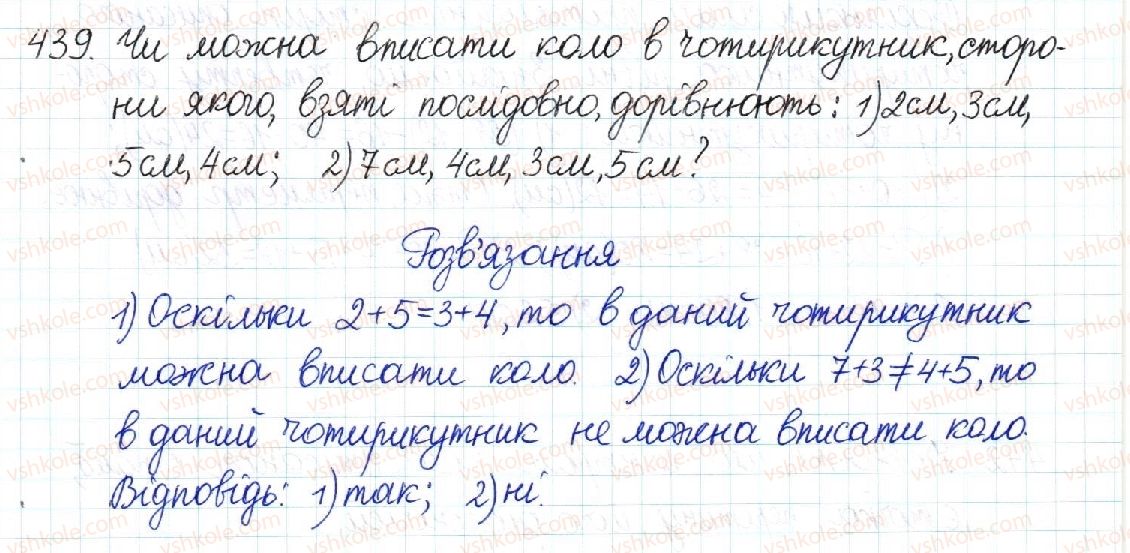 439. Чи можна вписати коло в чотирикутник, сторо-
ни якого, взяті послідовно, дорівнюють: 1) 2 см, 3 см,
5 см, 4 см; 2) 7 см, 4 см, 3 см, 5 см?
Розв'язання
1) Оскільки 2+5=3+4, то в даний чотирикутник
можна вписати коло. 2) Оскільки 7+3≠4+5, то
в даний чотирикутник не можна вписати коло.
Відповідь: 1) так; 2) ні.